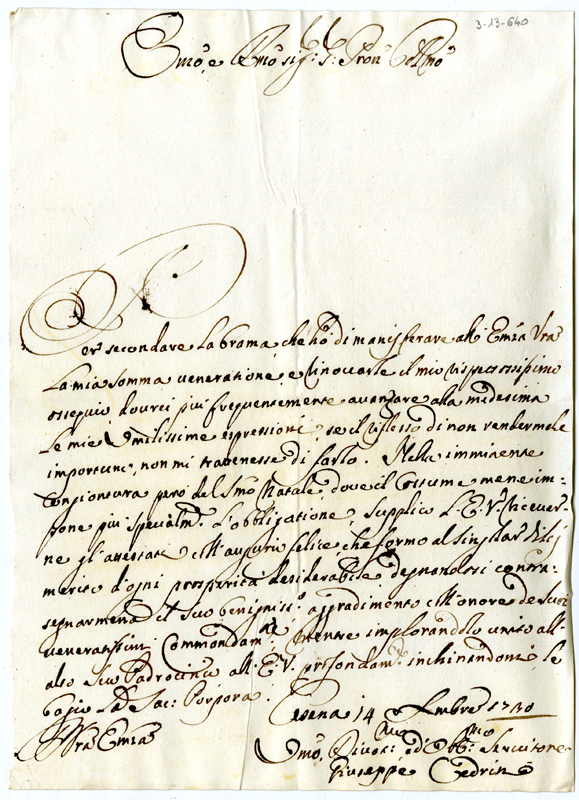 3-13-640
Emo, e Rmo sig.r s.r Pron Colmo
Per secondare la brama, che hò di manifestare all' Emza Vra
la mia somma veneratione, e rinovarle il mio rispettosissimo
ossequio, dovrei più frequentemente avanzare alla medesima
le mie Umilissime espressioni, se il riflesso di non rendermele
importuno, non mi trattenesse di farlo. Nella imminente
congiontura però del Smo Natale, dove il costume mene im:
pone più specialm.te l'obbligatione, supplico L'E. V. ricever:
ne gl'attestati coll'augurio felice, che formo al singolar di lei
merito d'ogni prosperità desiderabile, degnandosi contra:
segnarmene il suo benignis.o aggradimento coll'onore de suoi
veneratissimi Commandam.ti, mentre implorandolo unito all'
alto suo Padrocinio all'E. V. profondam.te inchinandomi le
bagio la Sac: Porpora.
Cesena 14 Xmbre 1730
Vra Emza
Umo, Divotmo ed Obbmo Servitore
Giuseppe